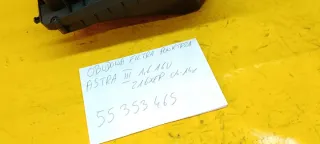 OBUDOWA FILTRA POWIETRZA
ASTRA III 1,6 16V
Z16XEP
55 353 465